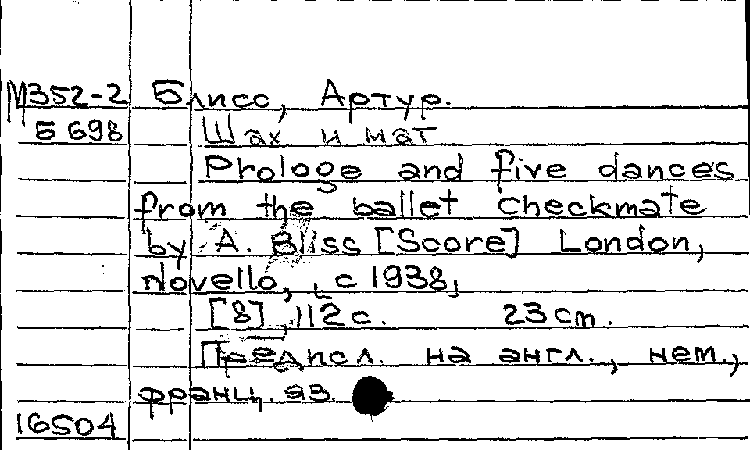 М352-2 Блисс, Артур.
Б 698 Шах и мат
Prologe and five dances
from the ballet Checkmate
by A. Bliss [Score] London,
Novello, [c 1938]
[8], 112 с. 23 cm.
Предисл. на англ., нем.,
франц. яз.
16504